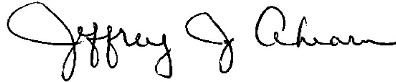 Jeffrey J Ahearn